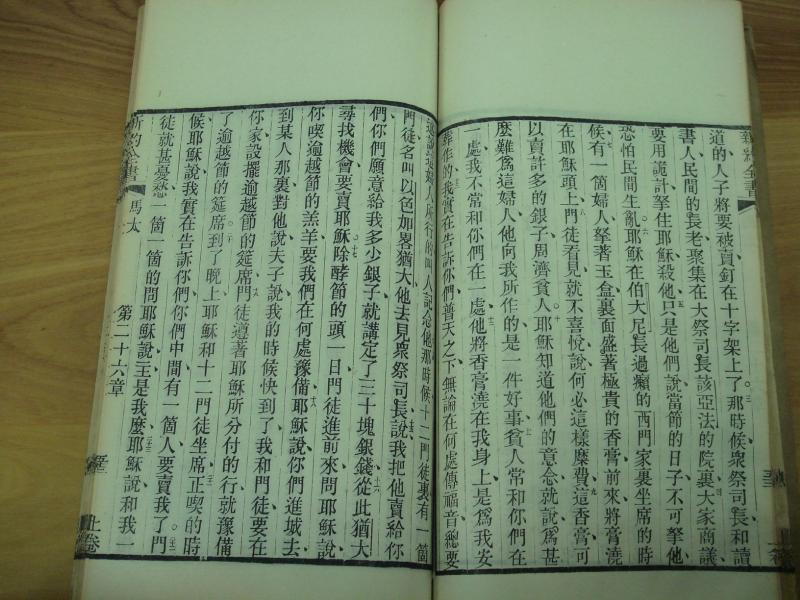 新約全書
道的人子將要被賣釘在十字架上了三那時候衆祭司長和讀
書人民間的長老聚集在大祭司長該亞法的院裏大家商議
要用詭計拏住耶穌殺他五只是他們說當節的日子不可拏他
恐怕民間生亂六耶穌在伯大尼長過癩的西門家裏坐席的時
候七有一箇婦人拏著玉盒裏面盛著極貴的香膏前來將香膏澆
在耶穌頭上八門徒看見就不喜悅說何必這樣糜費九這香膏可
以賣許多的銀子周濟貧人十耶穌知道他們的意念就說爲甚
麼難爲這婦人他向我所作的是一件好事十一貧人常和你們在
一處我不常和你們在一處十二他將香膏澆在我身上是爲我安
葬作的十三我實在告訴你們普天之下無論在何處傳福音總要
述說這婦人所行的叫人記念他十四那時候十二門徒裏有一箇
門徒名叫以色加畧猶大他去見衆祭司長說十五我把他賣給你
們你們願意給我多少銀子就講定了三十塊銀錢十六從此猶大
尋找機會要賣耶穌十七除酵節的頭一日門徒進前來問耶穌說
你喫逾越節的羔羊要我們在何處豫備十八耶穌說你們進城去
到某人那裏對他說夫子說我的時候快到了我和門徒要在
你家設擺逾越節的筵席十九門徒遵著耶穌所分付的行就豫備
了逾越節的筵席二十到了晚上耶穌和十二門徒坐席二十一正喫的時
候耶穌說我實在告訴你們你們中間有一箇人要賣我了二十二門
徒就甚憂愁一箇一箇的問耶穌說主是我麼二十三耶穌說和我一
新約全書 馬太 第二十六章 上卷